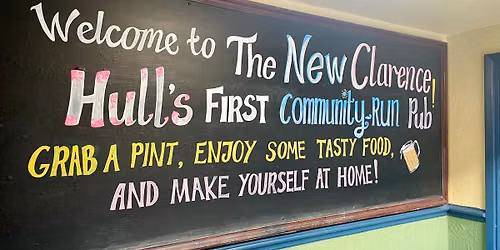 Welcome to The New Clarence!
Hull's First Community-Run Pub
GRAB A PINT, ENJOY SOME TASTY FOOD,
AND MAKE YOURSELF AT HOME!